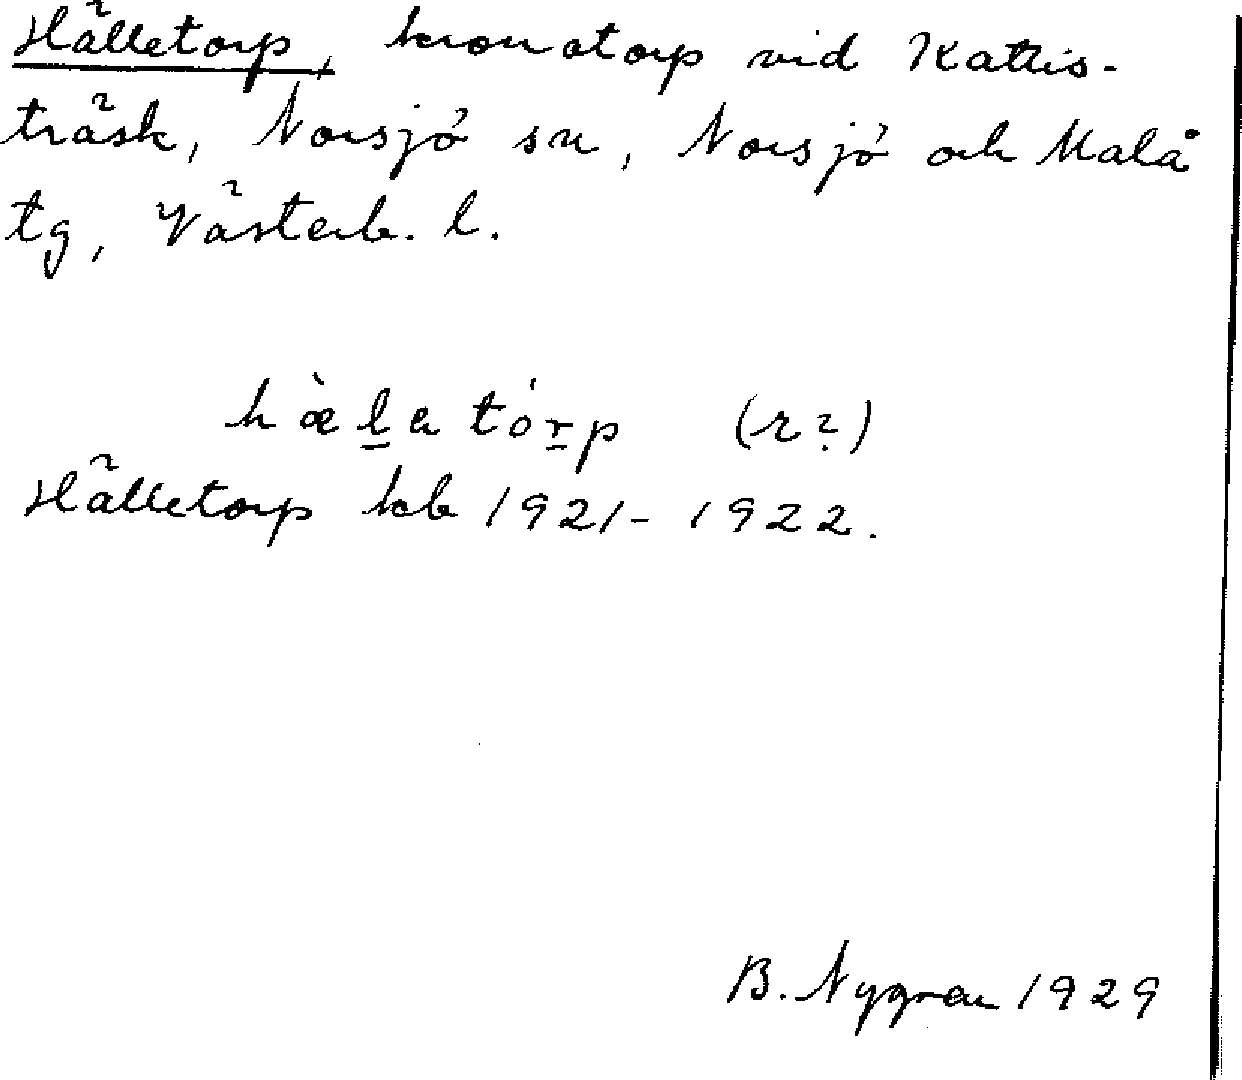 Hälletorp, kronotorp vid Kattis-
träsk, Norsjö sn, Norsjö och Malå
tg, Västerb. l.
hæ̀l̲a tórp̲ (r?)
Hälletorp kb 1921-1922.
B. Nygren 1929